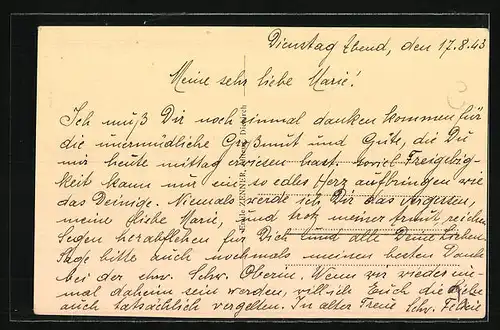 Dienstag Abend, den 17.8.43
Meine sehr liebe Marie!
Ich muß Dir noch einmal danken kommen für
die unermüdliche Großmut und Güte, die Du
mir heute mittag erwiesen hast. Soviel Freigebig-
keit kann nur ein so edles Herz aufbringen wie
das Deinige. Niemals werde ich Dir das vergessen,
meine liebe Marie, und trotz meiner Armut, reichen
Segen herabflehen für Dich und alle Deine Lieben.
Sage bitte auch nochmals meinen besten Dank
bei der ehrw. Schw. Oberin. Wenn wir wieder ein-
mal daheim sein werden, will ich Euch die Liebe
auch tatsächlich vergelten. In alter Treue Schw.
ZENNER,